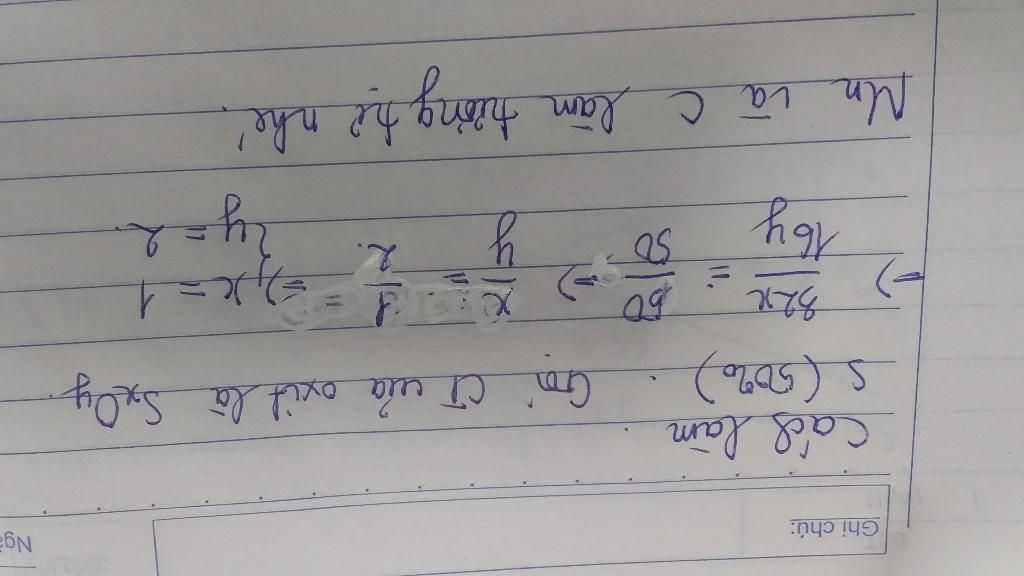 Ngà
Ghi chú:
Cách làm
S (50%). Gọi CT của oxit là SxOy.
=> 32x/16y = 50/50 => x/y = 1/2 => { x = 1
y = 2.
Mn và C làm tương tự nhé.